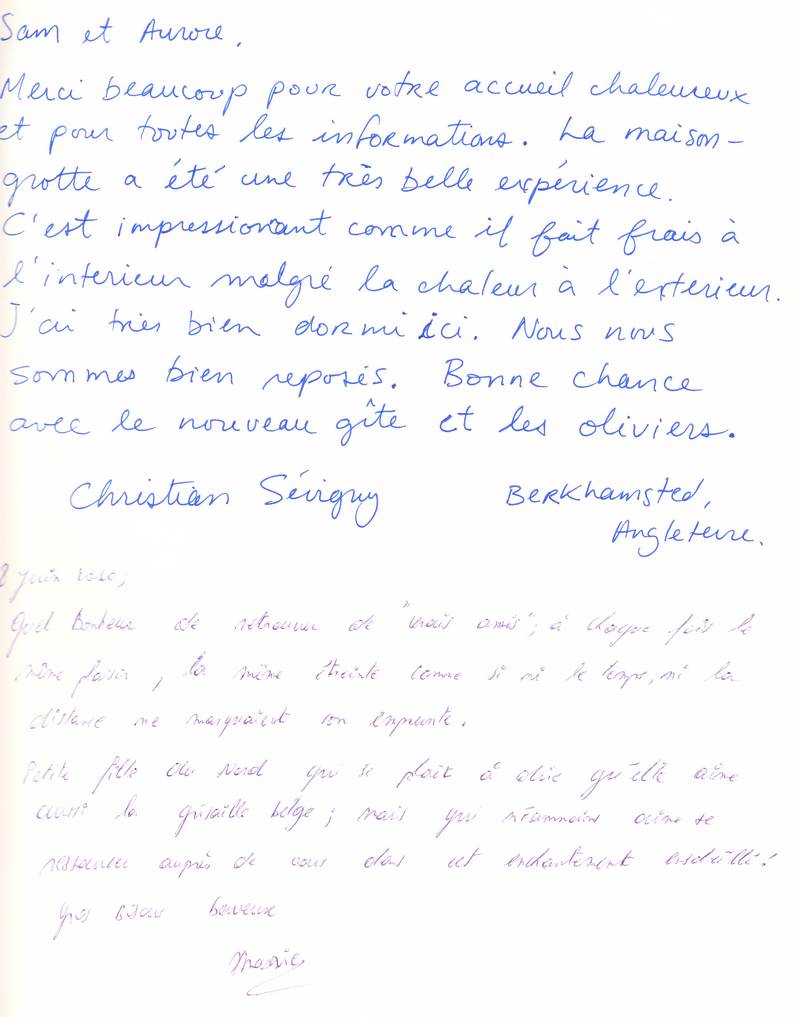 Sam et Aurore,
Merci beaucoup pour votre accueil chaleureux
et pour toutes les informations. La maison-
grotte a été une très belle expérience.
C'est impressionant comme il fait frais à
l'interieur malgré la chaleur à l'exterieur.
J'ai très bien dormi ici. Nous nous
sommes bien reposés. Bonne chance
avec le nouveau gîte et les oliviers.
Christian Sévigny
Berkhamsted,
Angleterre.
Juin
Quel bonheur de retrouver de "vrais amis"; à chaque fois le
même plaisir, la même étreinte comme si ni le temps, ni la
distance ne marquaient son empreinte.
Petite fille du Nord qui se plaît à dire qu'elle aime
aussi la grisaille belge; mais qui néammoins aime se
ressourcer auprès de vous dans cet enchantement ensoleillé!
Gros bisous baveux